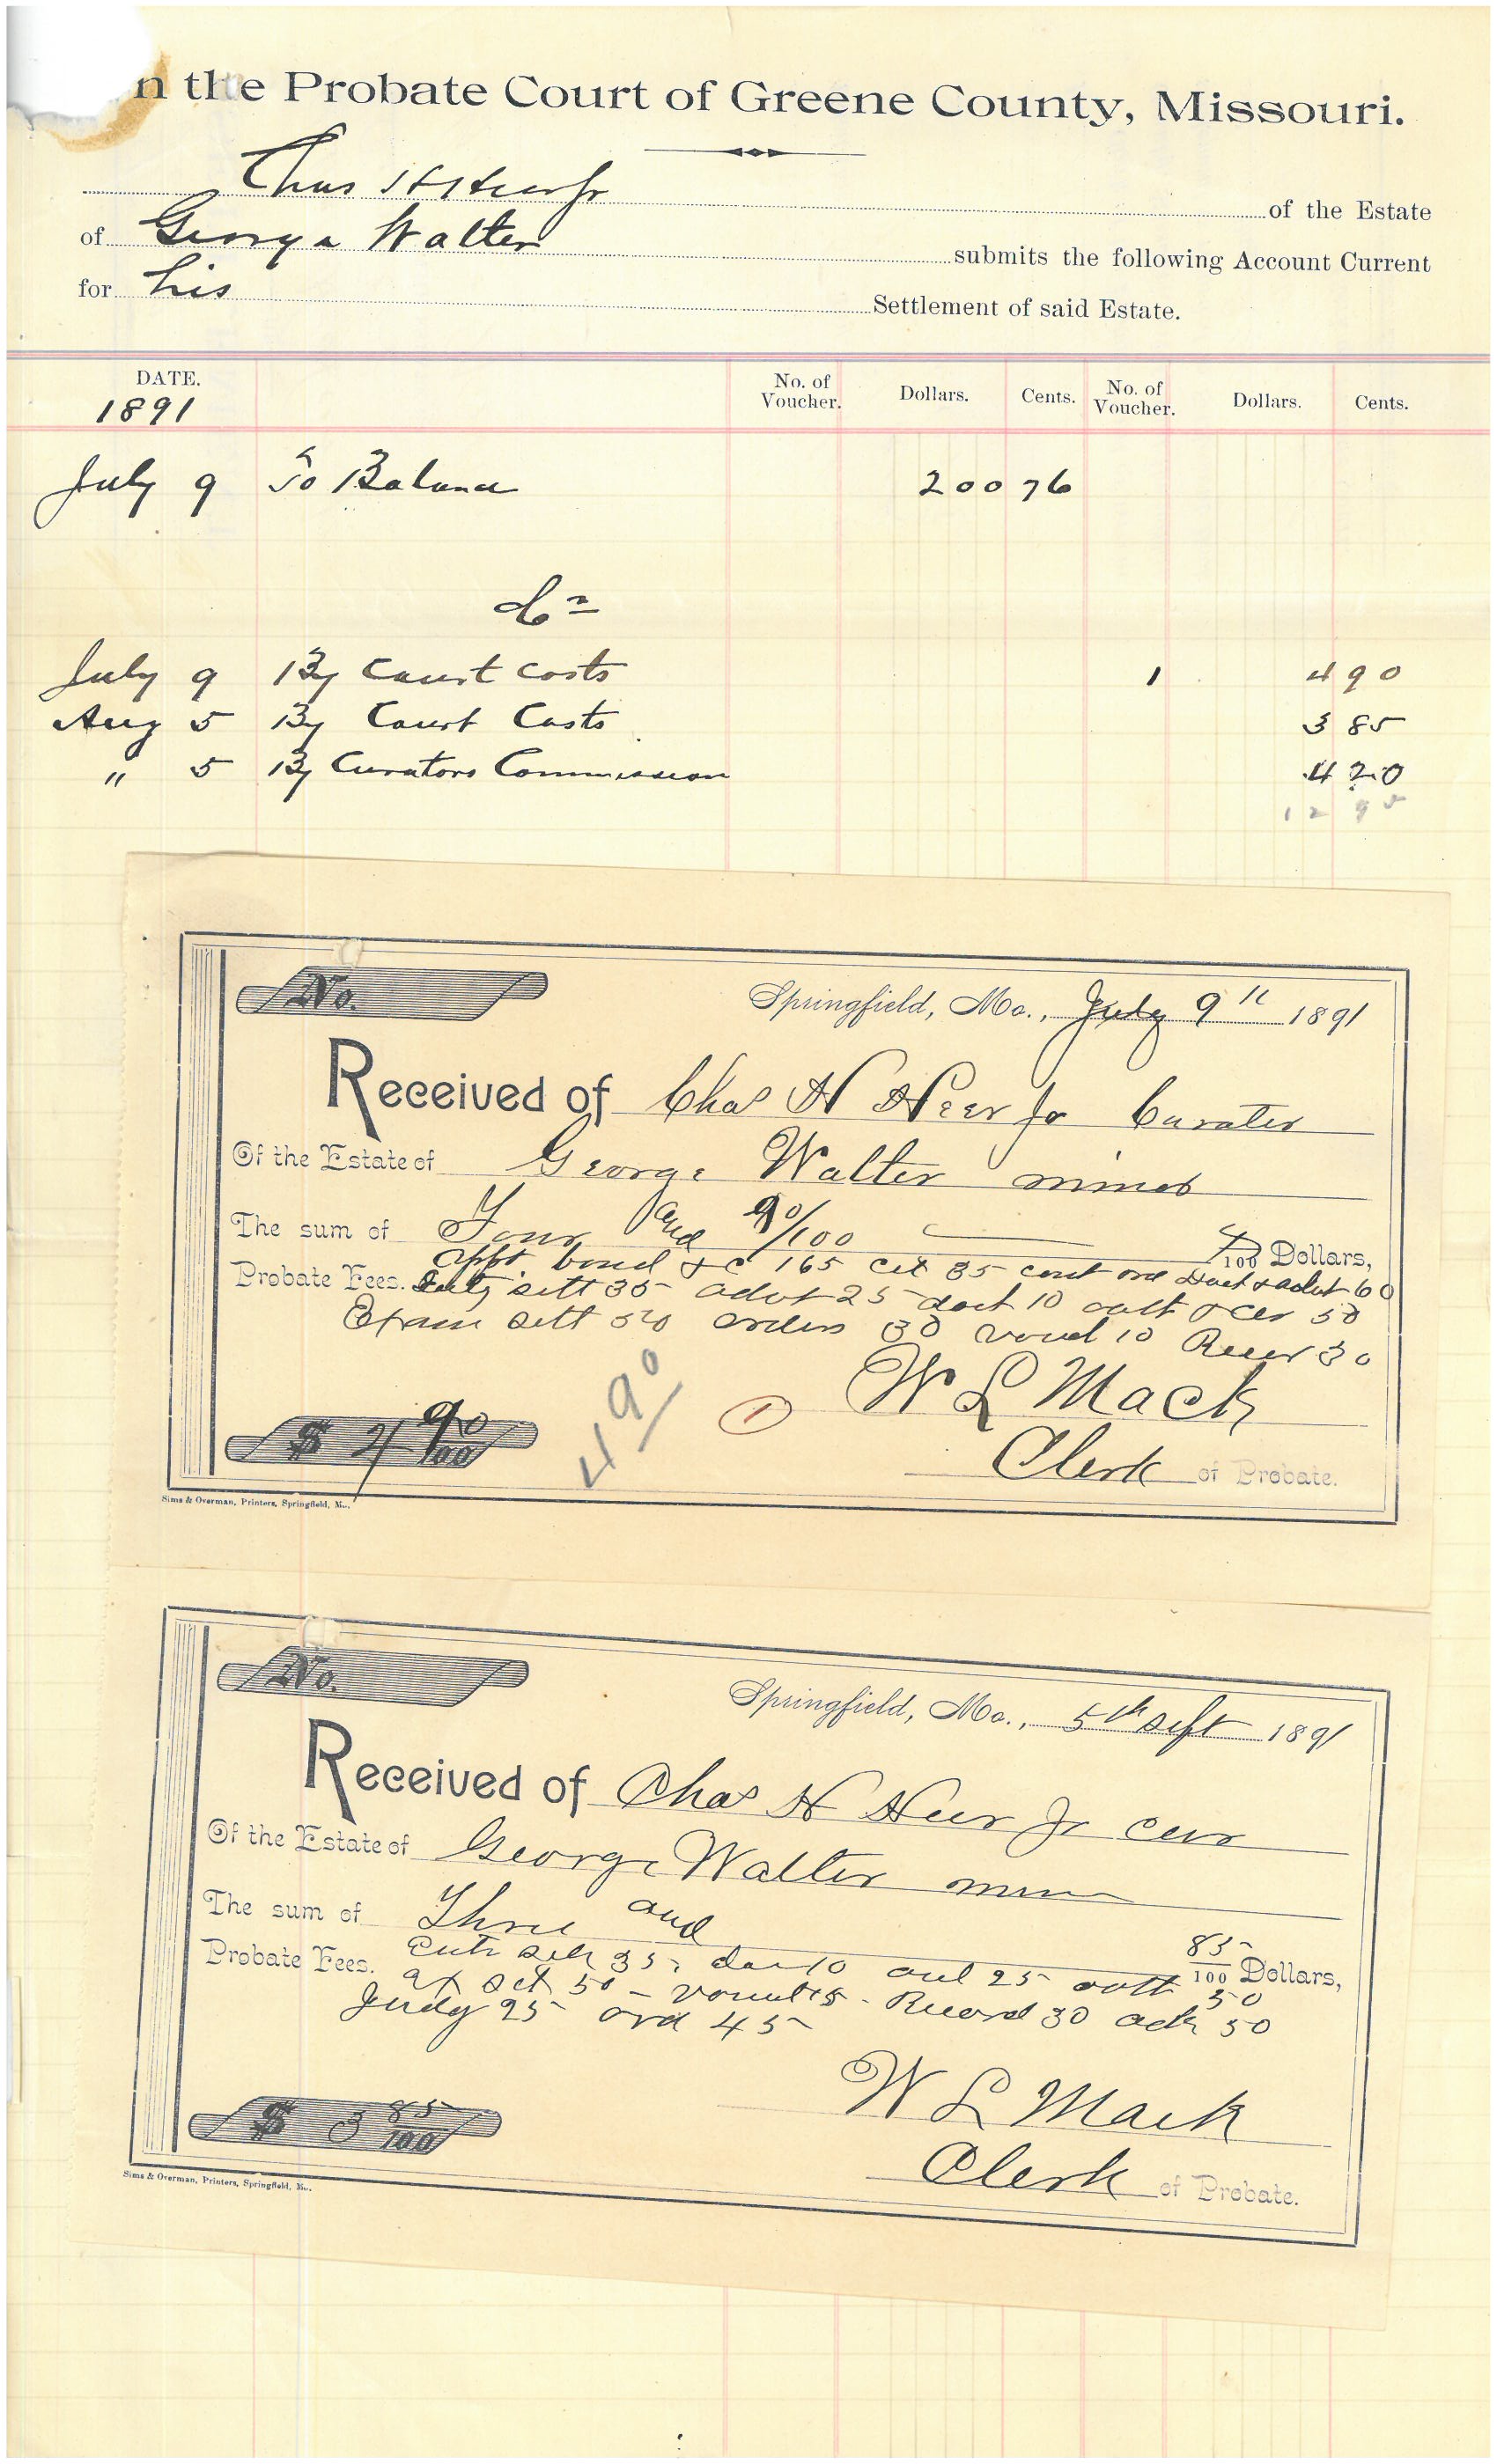 n the Probate Court of Greene County, Missouri.
Chas H Heer Jr of the Estate
of George Walter submits the following Account Current
for his Settlement of said Estate.
DATE. No. of Voucher. Dollars. Cents. No. of Voucher. Dollars. Cents.
1891
July 9 To Balance 200 76
Cr
July 9 By Court Costs 1 4 90
Aug 5 By Court Costs 3 85
" 5 By Curators Commission 4 20
12 95
No.
Springfield, Mo., July 9th 1891
Received of Chas H Heer Jr Curator
Of the Estate of George Walter minor
The sum of Four and 90/100 /100 Dollars,
Probate Fees. appt. bond &c 165 cet 35 cont ord Doct & advt 60
sett 35 advt 25 doct 10 oath & cer 50
Exam sett 50 orders 30 vouch 10 Recor 30
W L Mack
Clerk of Probate.
$ 4 90/100
4 90
1
Sims & Overman, Printers, Springfield, Mo.
No.
Springfield, Mo., 5th Sept 1891
Received of Chas H Heer Jr cur
Of the Estate of George Walter minor
The sum of Three and 85/100 Dollars,
Probate Fees. Entr sett 35, doc 10 and 25 oath 50
ex set 50 - vouch 15 - Record 30 ack 50
Judg 25 ord 45
W L Mack
Clerk of Probate.
$ 3 85/100
Sims & Overman, Printers, Springfield, Mo.